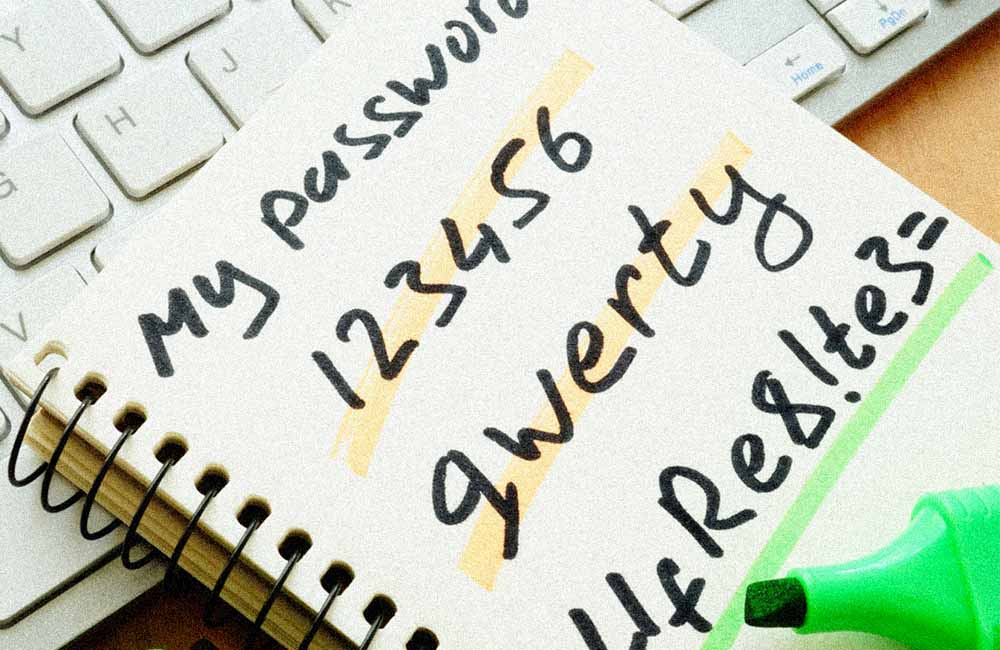 My password
123456
qwerty
fRe8!te3=
Y
K
J
H
G
V
Home
PgDn